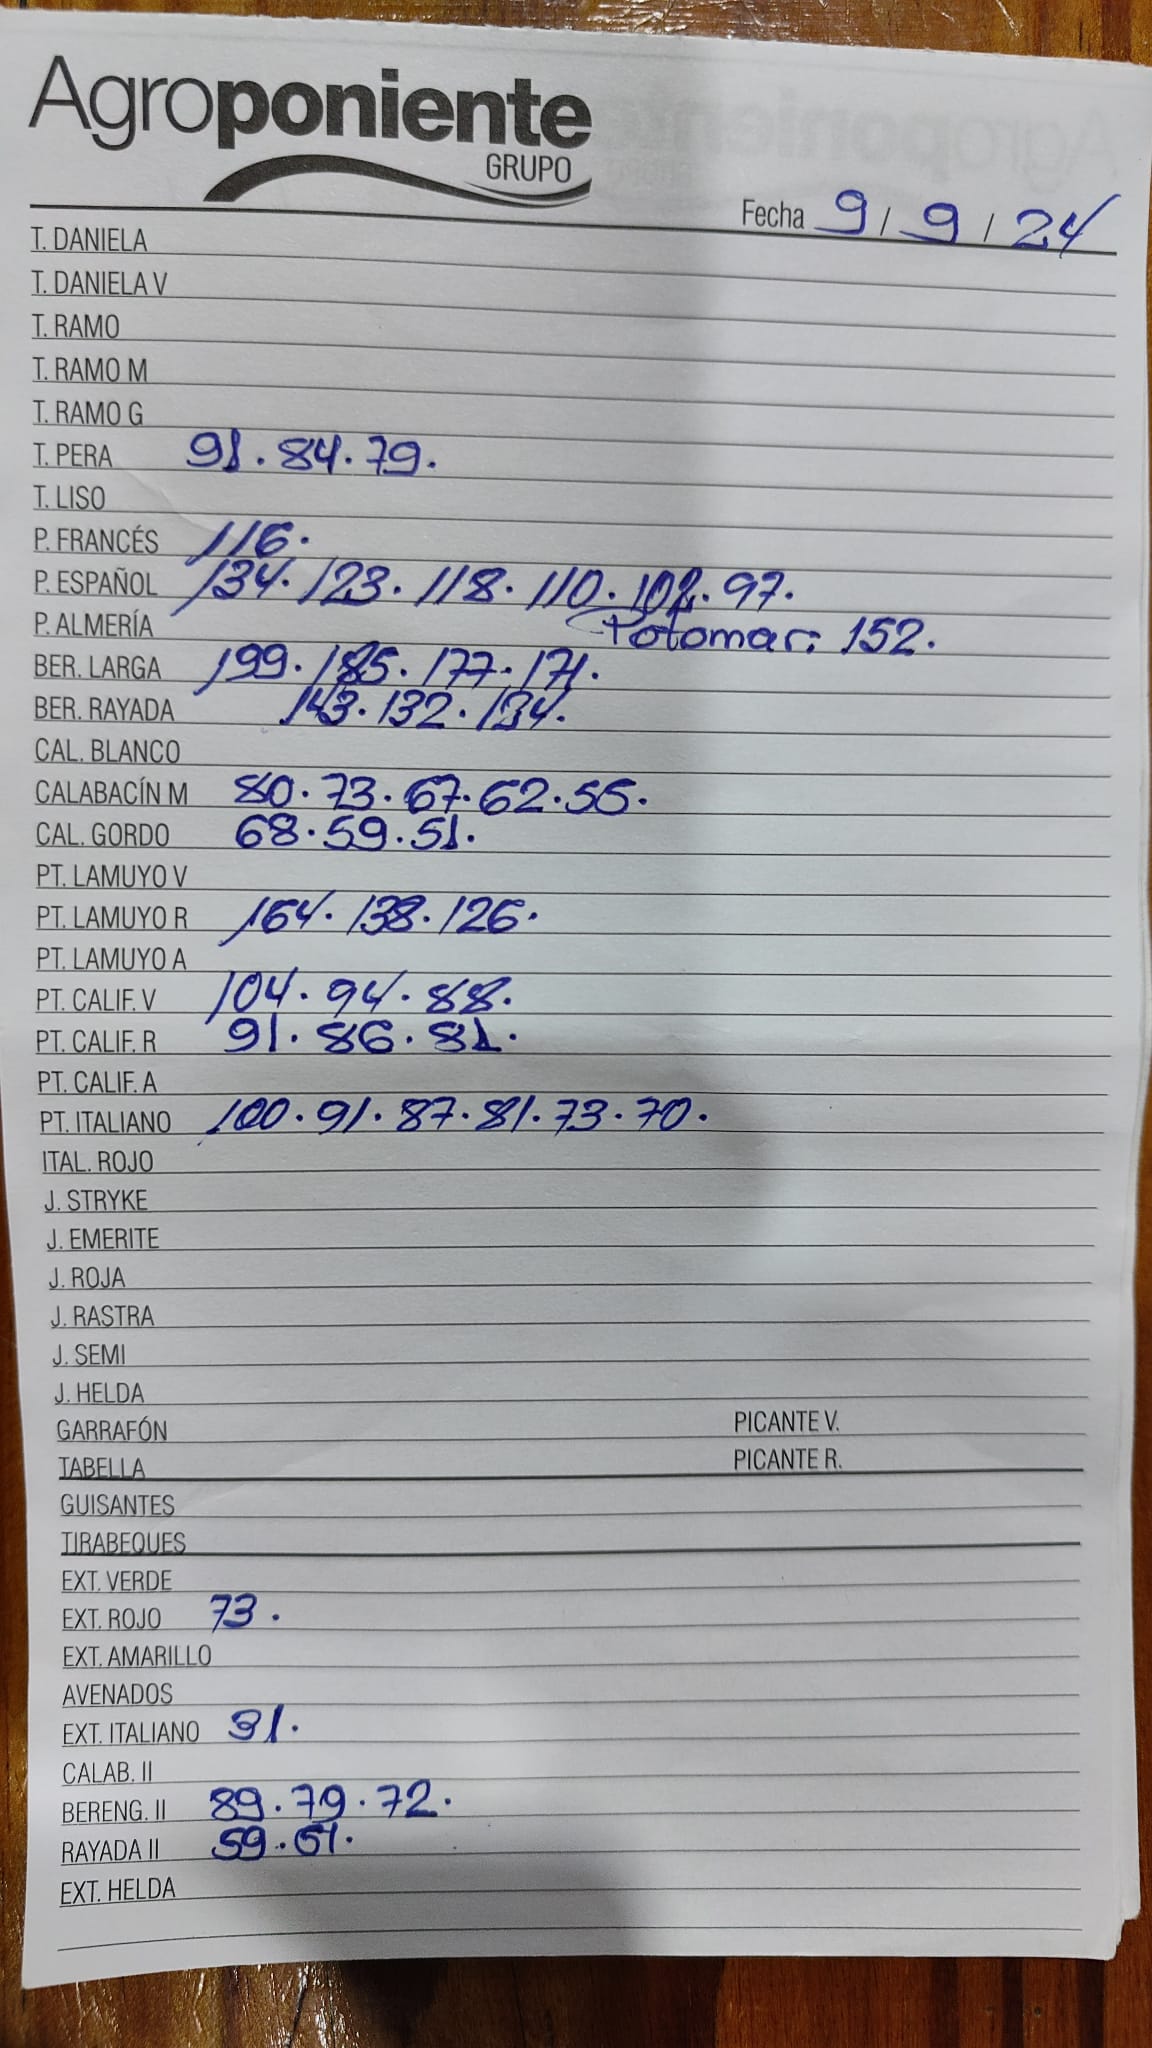 Agroponiente
GRUPO
Fecha 9 / 9 / 24
T. DANIELA
T. DANIELA V
T. RAMO
T. RAMO M
T. RAMO G
T. PERA 91. 84. 79.
T. LISO
P. FRANCÉS 116.
P. ESPAÑOL 134. 123. 118. 110. 102. 97.
P. ALMERÍA Potomac: 152.
BER. LARGA 199. 185. 177. 171.
BER. RAYADA 143. 132. 134.
CAL. BLANCO
CALABACÍN M 80. 73. 67. 62. 55.
CAL. GORDO 68. 59. 51.
PT. LAMUYO V
PT. LAMUYO R 164. 138. 126.
PT. LAMUYO A
PT. CALIF. V 104. 94. 88.
PT. CALIF. R 91. 86. 81.
PT. CALIF. A
PT. ITALIANO 100. 91. 87. 81. 73. 70.
ITAL. ROJO
J. STRYKE
J. EMERITE
J. ROJA
J. RASTRA
J. SEMI
J. HELDA
GARRAFÓN PICANTE V.
TABELLA PICANTE R.
GUISANTES
TIRABEQUES
EXT. VERDE
EXT. ROJO 73.
EXT. AMARILLO
AVENADOS
EXT. ITALIANO 31.
CALAB. II
BERENG. II 89. 79. 72.
RAYADA II 59. 51.
EXT. HELDA